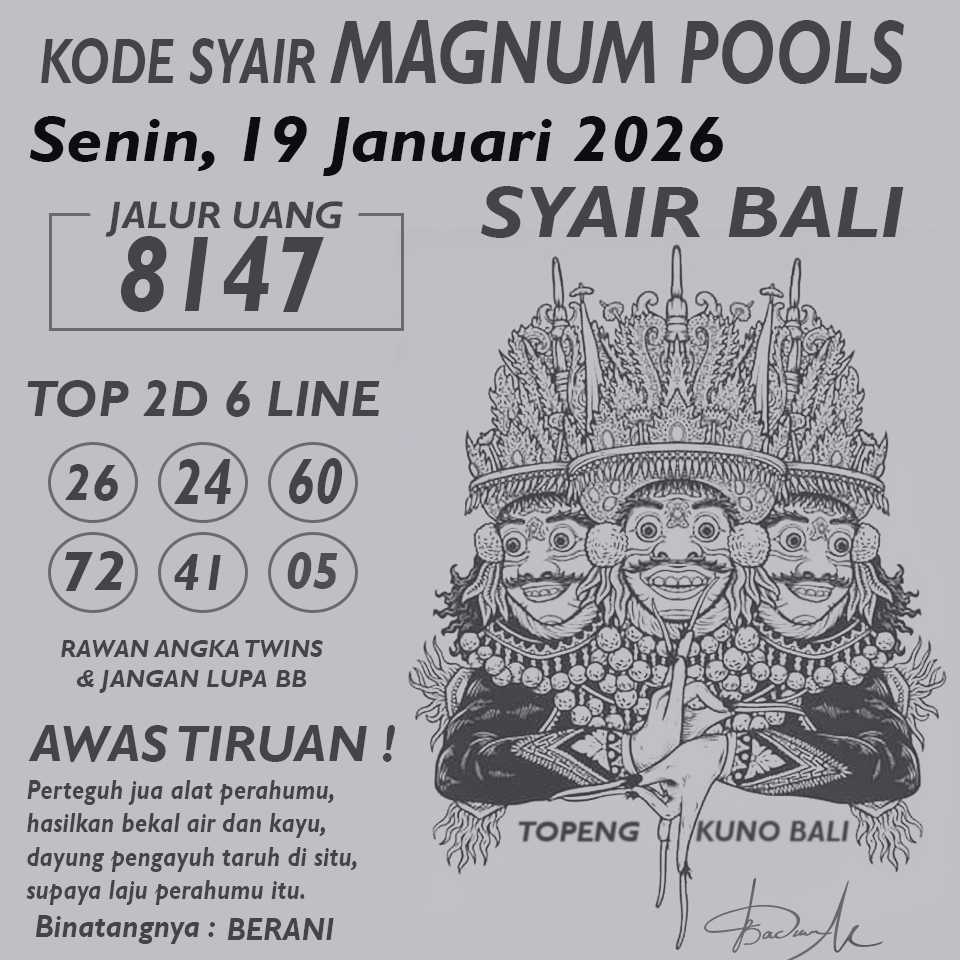 KODE SYAIR MAGNUM POOLS
Senin, 19 Januari 2026
SYAIR BALI
JALUR UANG
8147
TOP 2D 6 LINE
26 24 60
72 41 05
RAWAN ANGKA TWINS
& JANGAN LUPA BB
AWAS TIRUAN !
Perteguh jua alat perahumu,
hasilkan bekal air dan kayu,
dayung pengayuh taruh di situ,
supaya laju perahumu itu.
Binatangnya : BERANI
TOPENG KUNO BALI